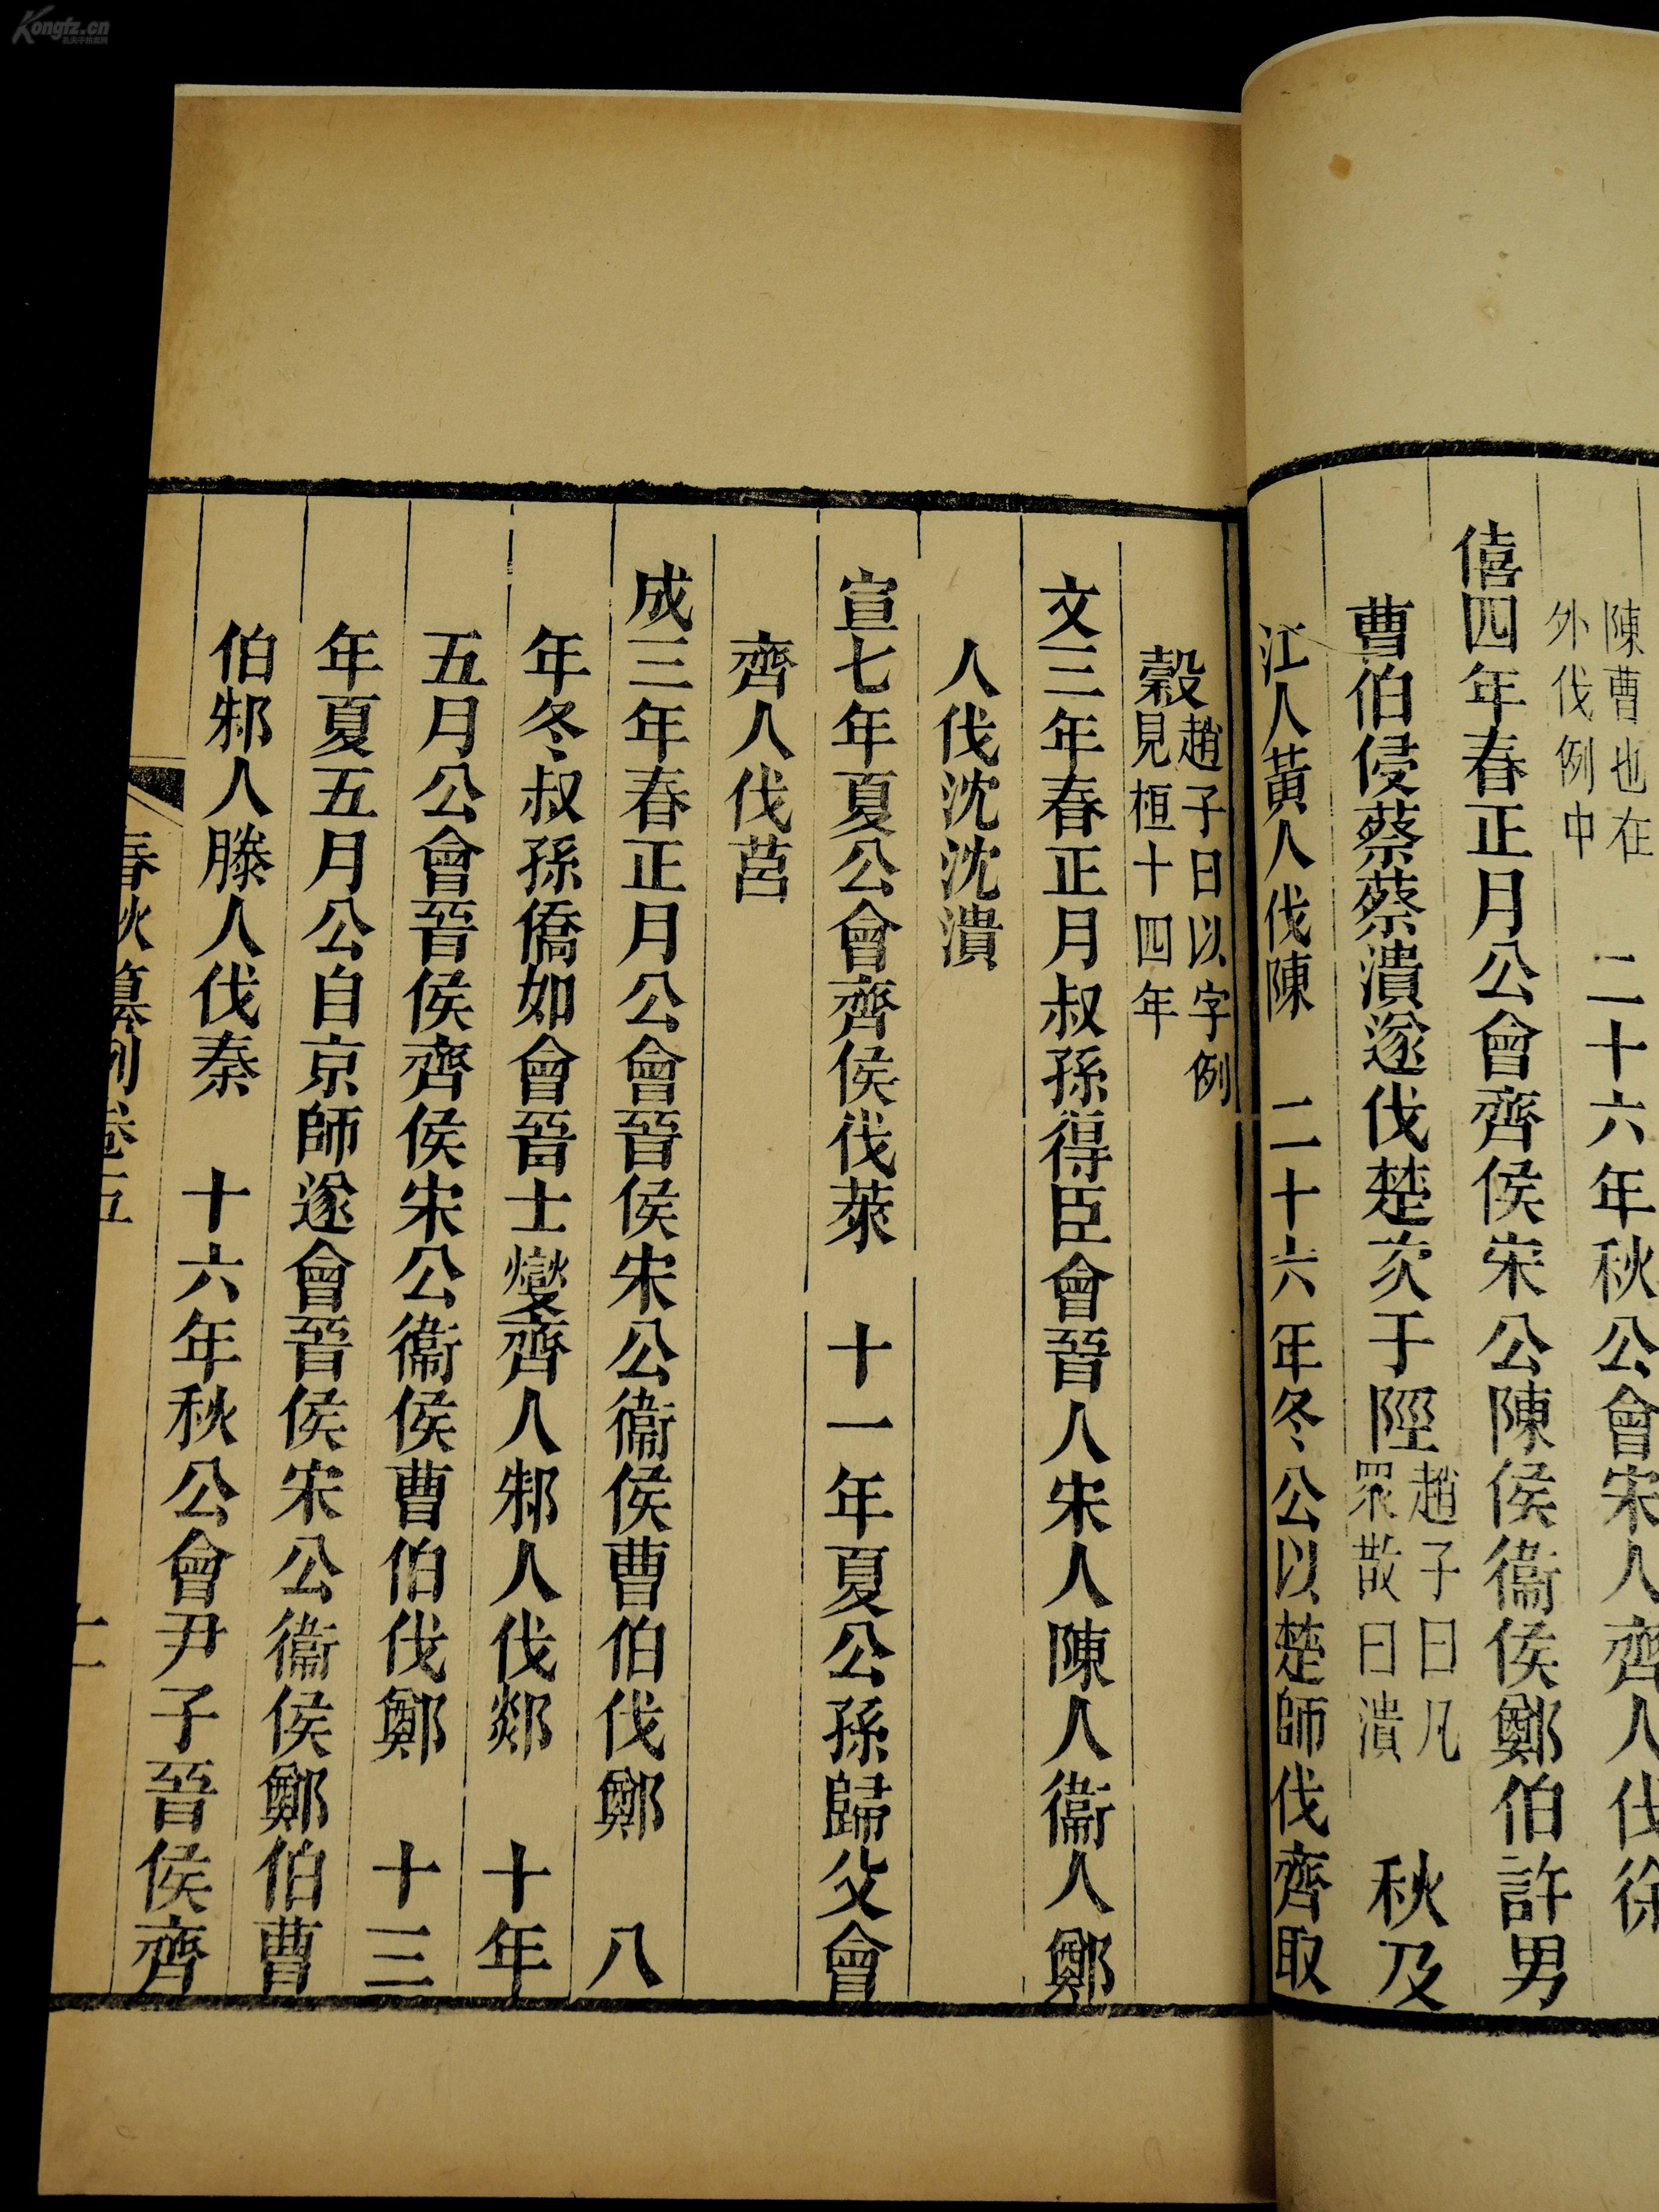 陳曹也在
外伐例中
二十六年秋公會宋人齊人伐徐
僖四年春正月公會齊侯宋公陳侯衞侯鄭伯許男
曹伯侵蔡蔡潰遂伐楚次于陘
趙子曰凡
眾散曰潰
秋及
江人黃人伐陳　二十六年冬公以楚師伐齊取
穀
趙子曰以字例
見桓十四年
文三年春正月叔孫得臣會晉人宋人陳人衞人鄭
人伐沈沈潰
宣七年夏公會齊侯伐萊　十一年夏公孫歸父會
齊人伐莒
成三年春正月公會晉侯宋公衞侯曹伯伐鄭　八
年冬叔孫僑如會晉士燮齊人邾人伐郯　十年
五月公會晉侯齊侯宋公衞侯曹伯伐鄭　十三
年夏五月公自京師遂會晉侯宋公衞侯鄭伯曹
伯邾人滕人伐秦　十六年秋公會尹子晉侯齊
春秋纂例卷五
Kongfz.cn